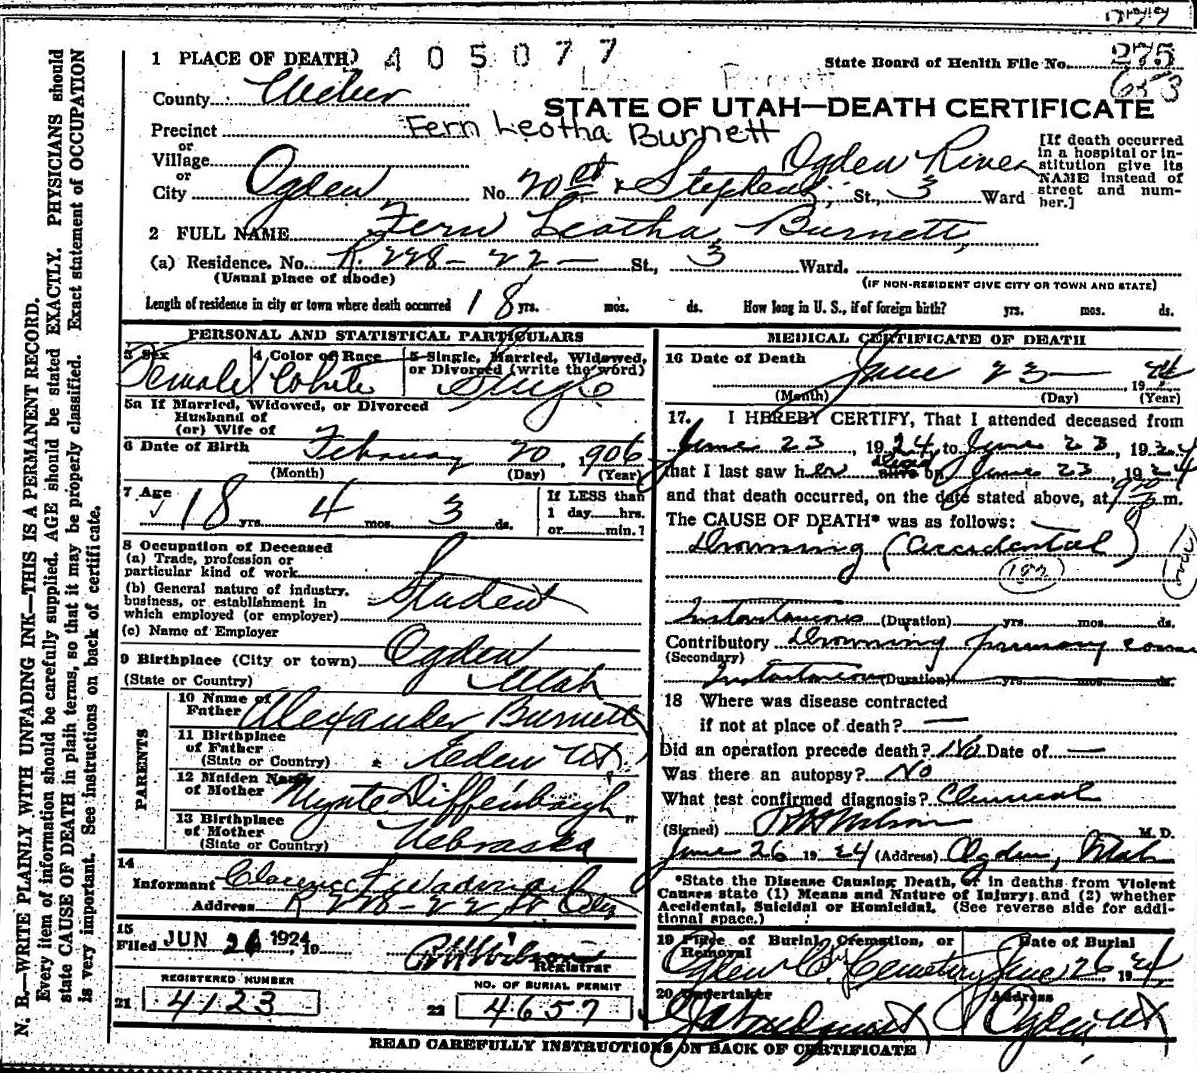 1 PLACE OF DEATH 405077
State Board of Health File No. 275
653
County Weber
STATE OF UTAH—DEATH CERTIFICATE
Precinct Fern Leotha Burnett
or
Village
or
City Ogden No. 20 st & Stephens; Ogden River St., 3 Ward
[If death occurred in a hospital or institution give its NAME instead of street and number.]
2 FULL NAME Fern Leotha Burnett,
(a) Residence. No. R. 228-22- St., 3 Ward.
(Usual place of abode) (IF NON-RESIDENT GIVE CITY OR TOWN AND STATE)
Length of residence in city or town where death occurred 18 yrs. mos. ds. How long in U. S., if of foreign birth? yrs. mos. ds.
PERSONAL AND STATISTICAL PARTICULARS
3 Sex Female
4 Color or Race White
5 Single, Married, Widowed, or Divorced (write the word) Single
5a If Married, Widowed, or Divorced
Husband of
(or) Wife of
6 Date of Birth February 20, 1906
(Month) (Day) (Year)
7 Age 18 yrs. 4 mos. 3 ds.
If LESS than
1 day.....hrs.
or.....min.?
8 Occupation of Deceased
(a) Trade, profession or
particular kind of work
(b) General nature of industry,
business, or establishment in
which employed (or employer) Student
(c) Name of Employer
9 Birthplace (City or town) Ogden
(State or Country) Utah
PARENTS
10 Name of
Father Alexander Burnett
11 Birthplace
of Father Eden Ut.
(State or Country)
12 Maiden Name
of Mother Diffenbaugh
13 Birthplace
of Mother Nebraska
(State or Country)
14
Informant Clarence
Address R 228-22 St City
15
Filed JUN 26 1924 19 Registrar
REGISTERED NUMBER
21 4123
NO. OF BURIAL PERMIT
22 4657
MEDICAL CERTIFICATE OF DEATH
16 Date of Death June 23 - 19 24
(Month) (Day) (Year)
17. I HEREBY CERTIFY, That I attended deceased from
June 23, 1924, to June 23, 1924
that I last saw her alive dead on June 23, 1924
and that death occurred, on the date stated above, at m.
The CAUSE OF DEATH* was as follows:
Drowning (Accidental)
182
Instantaneous (Duration) yrs. mos. ds.
Contributory Drowning primary cause
(Secondary)
Instantaneous (Duration) yrs. mos. ds.
18 Where was disease contracted
if not at place of death? —
Did an operation precede death? No Date of —
Was there an autopsy? No
What test confirmed diagnosis? Clinical
(Signed) R H Wilson M. D.
June 26 1924 (Address) Ogden, Utah
*State the Disease Causing Death, or in deaths from Violent
Causes state (1) Means and Nature of Injury; and (2) whether
Accidental, Suicidal or Homicidal. (See reverse side for additional space.)
19 Place of Burial, Cremation, or
Removal
Ogden City Cemetery
Date of Burial
June 26 1924
20 Undertaker
Address
Ogden Ut
READ CAREFULLY INSTRUCTIONS ON BACK OF CERTIFICATE
N. B.—WRITE PLAINLY WITH UNFADING INK—THIS IS A PERMANENT RECORD.
Every item of information should be carefully supplied. AGE should be stated EXACTLY. PHYSICIANS should
state CAUSE OF DEATH in plain terms, so that it may be properly classified. Exact statement of OCCUPATION
is very important. See instructions on back of certificate.